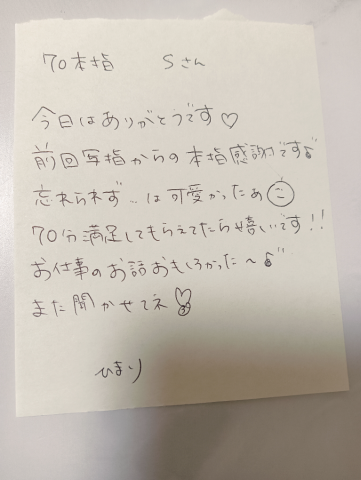 70本指 Sさん
今日はありがとうです♡
前回写指からの本指感謝です♪
忘れられず…は可愛かったあ
70分満足してもらえてたら嬉しいです!!
お仕事のお話おもしろかった〜♪
また聞かせてネ
ひまり